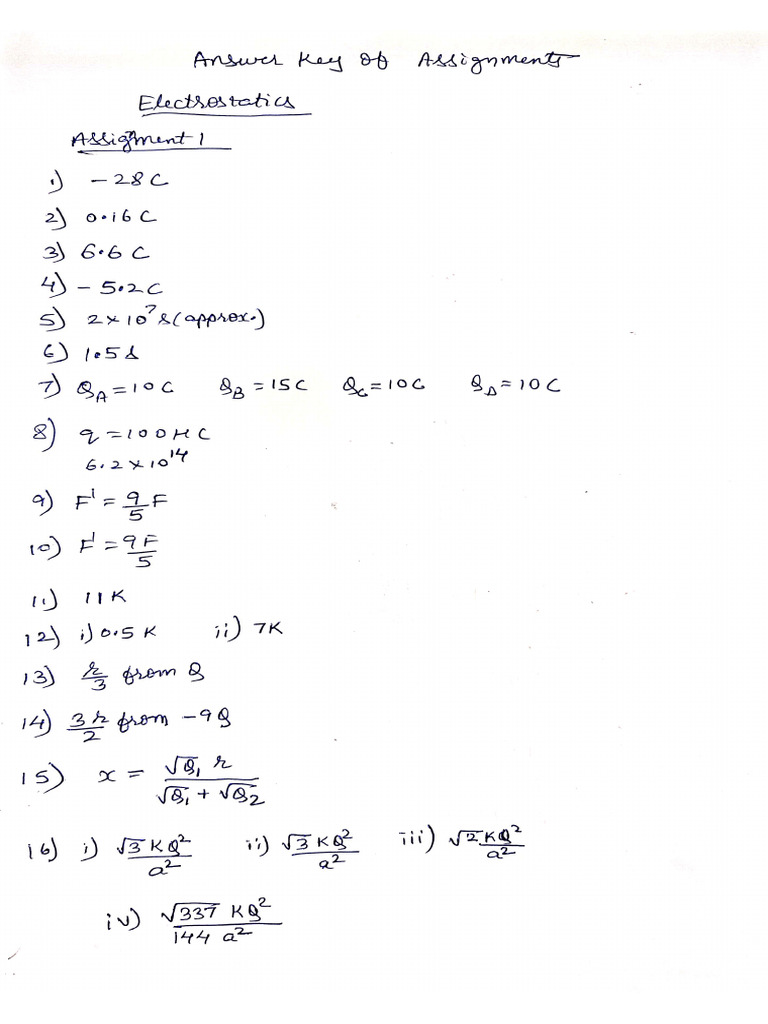 Answer Key of Assignments
Electrostatics
Assignment 1
1) -28C
2) 0.16C
3) 6.6 C
4) -5.2C
5) 2×10⁷ s (approx.)
6) 1.5 s
7) Q_A = 10C Q_B = 15C Q_C = 10C Q_D = 10C
8) q = 100 μC
6.2 × 10¹⁴
9) F' = 9/5 F
10) F' = 9F/5
11) 11K
12) i) 0.5K ii) 7K
13) r/3 from Q
14) 3r/2 from -9Q
15) x = √Q₁ r / (√Q₁ + √Q₂)
16) i) √3 KQ²/a² ii) √3 KQ²/a² iii) √2 KQ²/a²
iv) √337 KQ²/144 a²